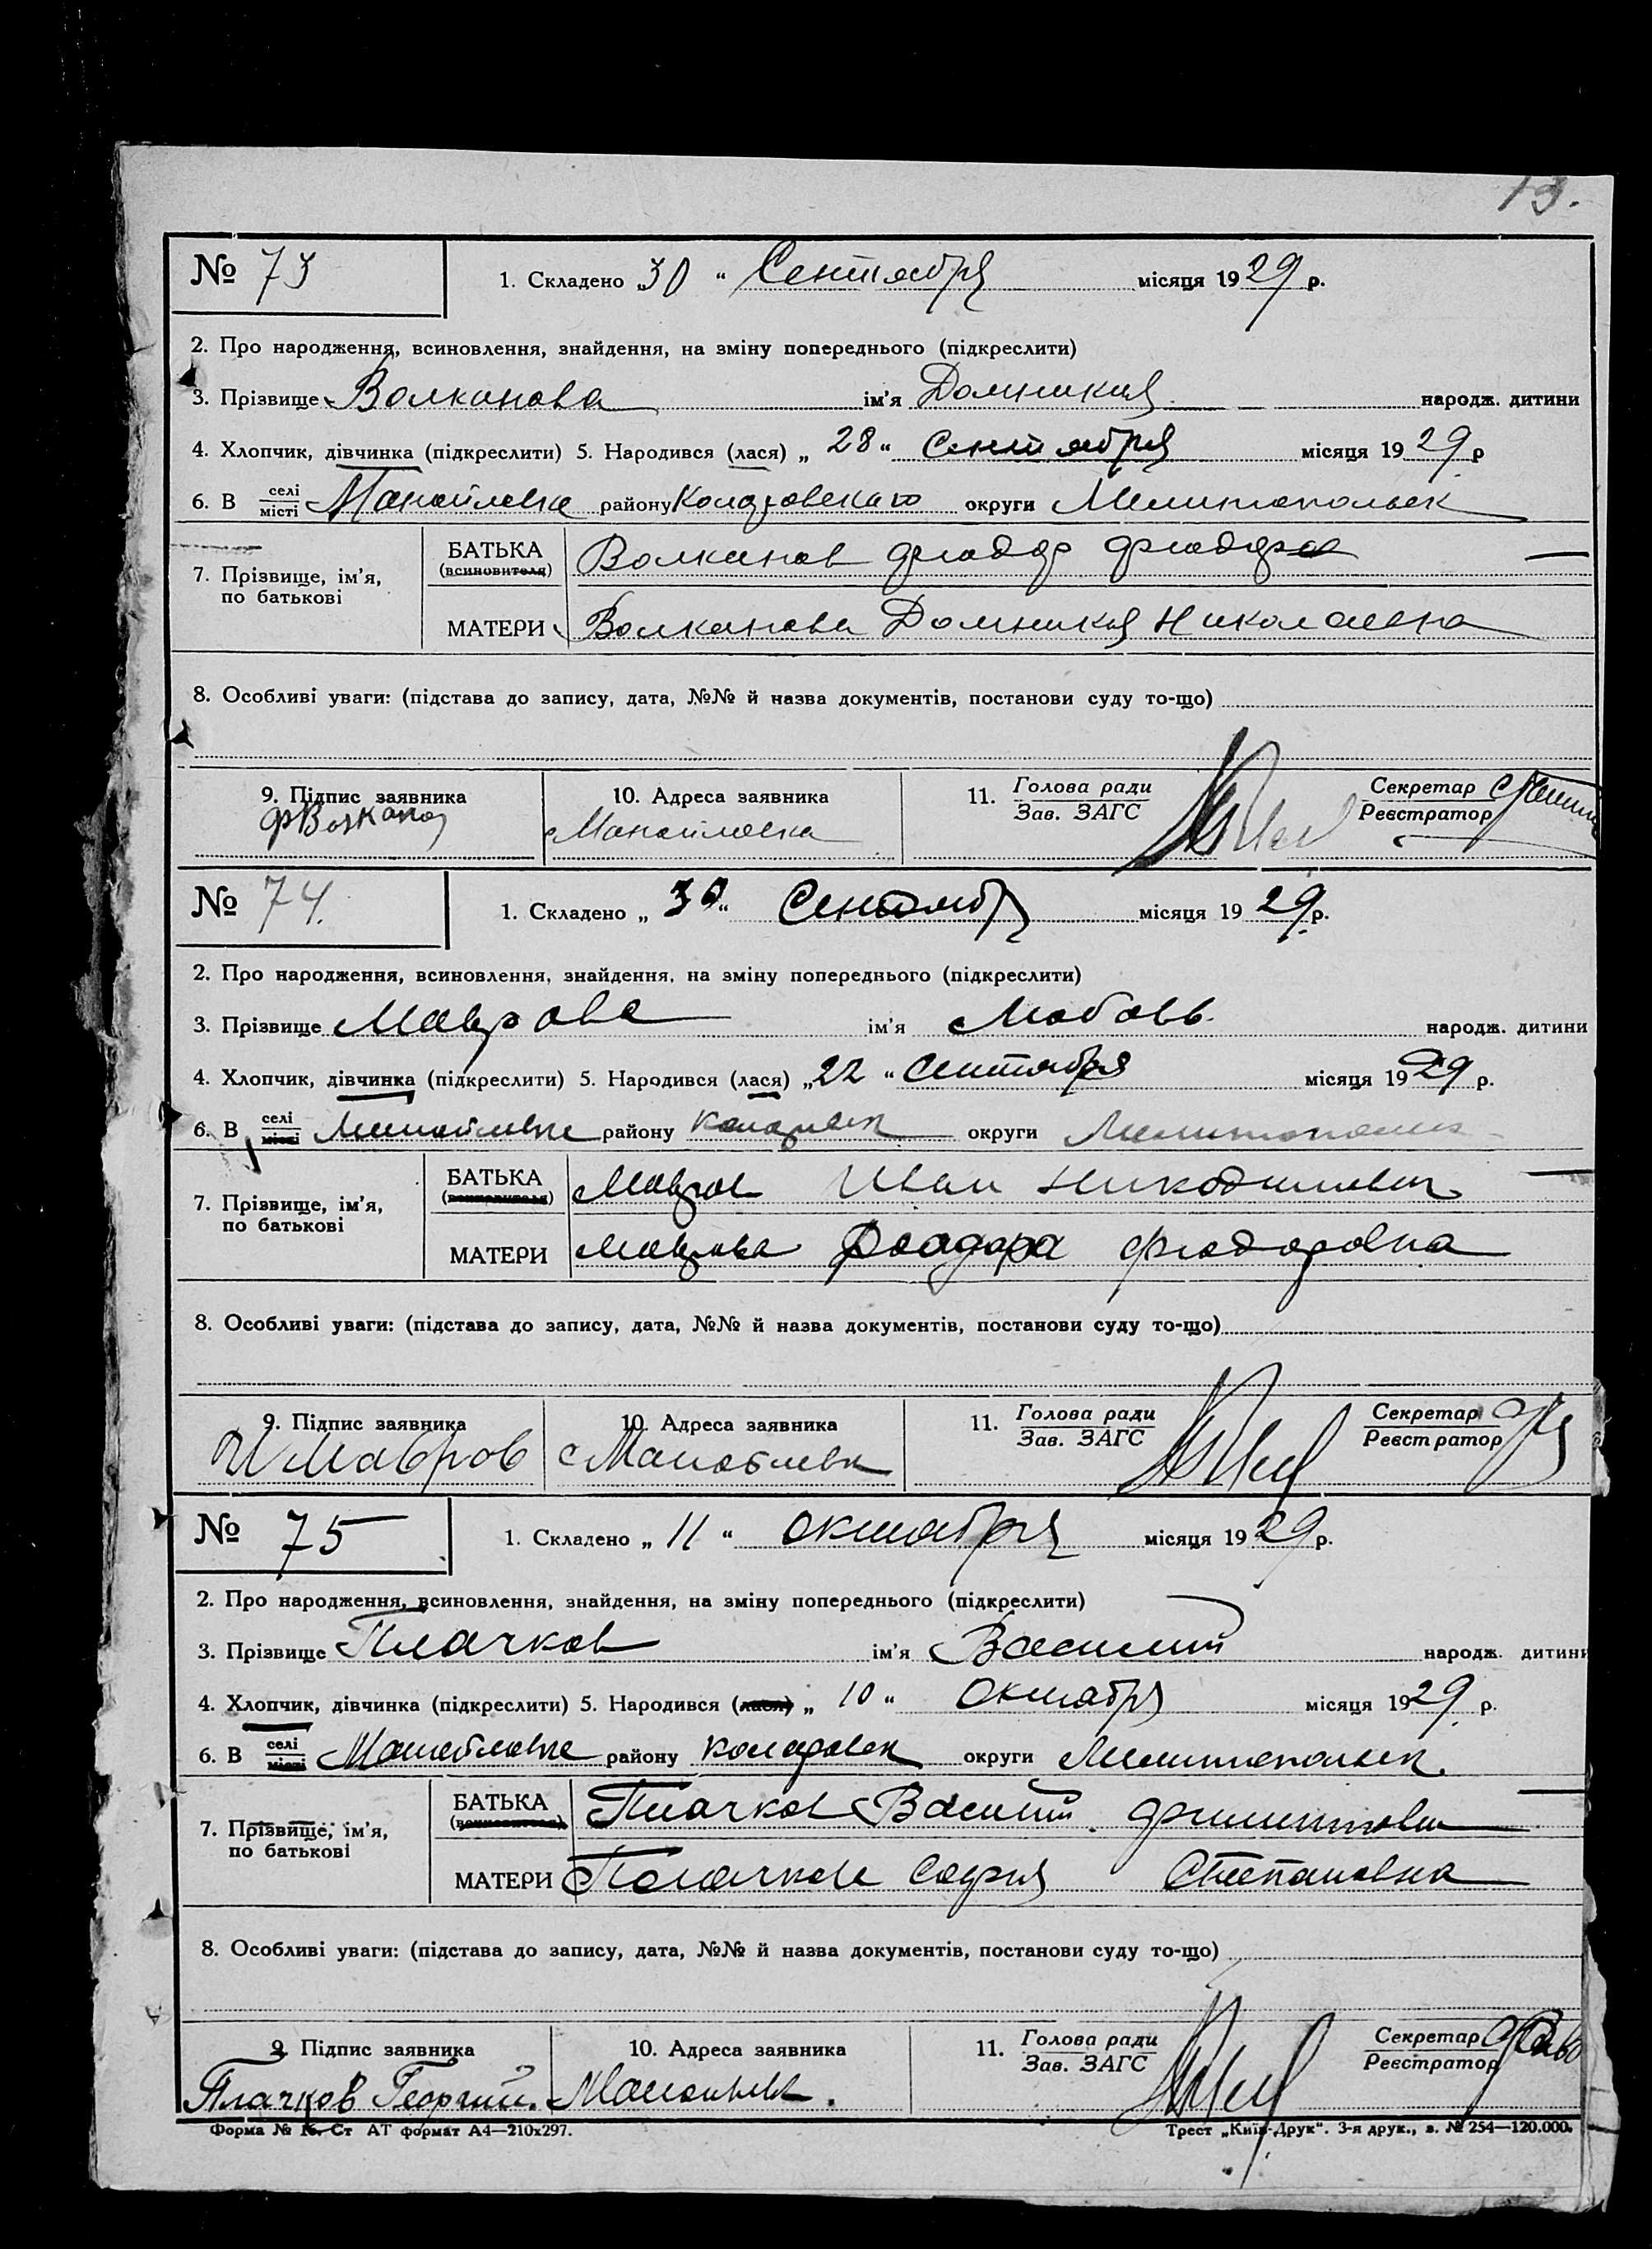 13.
№ 73
1. Складено „30" Сентября місяця 1929 р.
2. Про народження, всиновлення, знайдення, на зміну попереднього (підкреслити)
3. Прізвище Волканова ім'я Домникия народж. дитини
4. Хлопчик, дівчинка (підкреслити) 5. Народився (лася) „28" Сентября місяця 1929 р
6. В селі місті Манойловка району округи Мелитопольск
7. Прізвище, ім'я, по батькові
БАТЬКА (всиновителя) Волканов Фіодор
МАТЕРИ Волканова Домникия Николаевна
8. Особливі уваги: (підстава до запису, дата, №№ й назва документів, постанови суду то-що)
9. Підпис заявника 10. Адреса заявника 11. Голова ради Зав. ЗАГС Секретар Реєстратор
ФВолканов Манойловка
№ 74.
1. Складено „30" Сентябр місяця 1929 р.
2. Про народження, всиновлення, знайдення, на зміну попереднього (підкреслити)
3. Прізвище Маврова ім'я Любовь народж. дитини
4. Хлопчик, дівчинка (підкреслити) 5. Народився (лася) „22" Сентября місяця 1929 р.
6. В селі місті району округи
7. Прізвище, ім'я, по батькові
БАТЬКА Мавров Иван Никодимович
МАТЕРИ Маврова Фіодоровна
8. Особливі уваги: (підстава до запису, дата, №№ й назва документів, постанови суду то-що)
9. Підпис заявника 10. Адреса заявника 11. Голова ради Зав. ЗАГС Секретар Реєстратор
И Мавров
№ 75
1. Складено „11" октября місяця 1929 р.
2. Про народження, всиновлення, знайдення, на зміну попереднього (підкреслити)
3. Прізвище Плачков ім'я Василий народж. дитини
4. Хлопчик, дівчинка (підкреслити) 5. Народився (лася) „10" Октября місяця 1929 р.
6. В селі місті Манойловке району коларовск округи Мелитопольск.
7. Прізвище, ім'я, по батькові
БАТЬКА Плачков Василий
МАТЕРИ София Степановна
8. Особливі уваги: (підстава до запису, дата, №№ й назва документів, постанови суду то-що)
9. Підпис заявника 10. Адреса заявника 11. Голова ради Зав. ЗАГС Секретар Реєстратор
Плачков Георгий.
Форма № Ст АТ формат А4—210х297. Трест „Київ-Друк". 3-я друк., з. № 254—120.000.